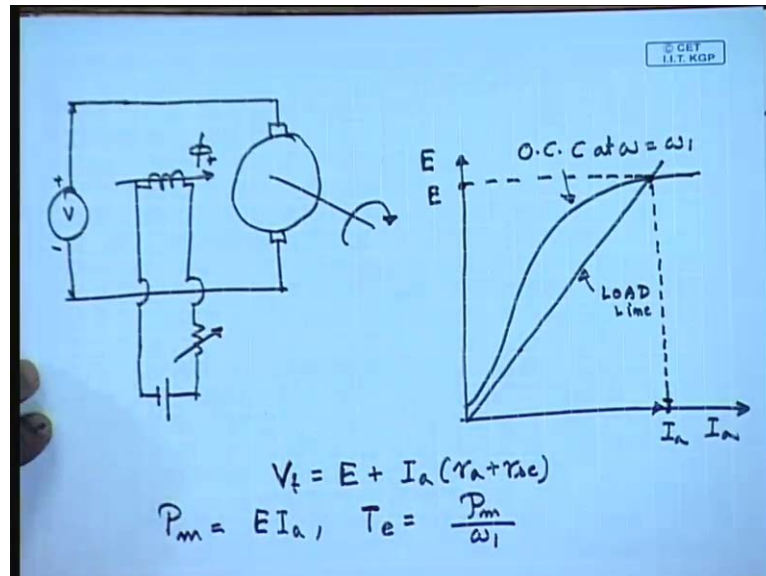 © CET
I.I.T. KGP
O.C.C at ω = ω₁
E
E
ϕ
+
V
-
LOAD
Line
Iₐ Iₐ
Vₜ = E + Iₐ(rₐ + rse)
Pₘ = E Iₐ, Tₑ = Pₘ / ω₁